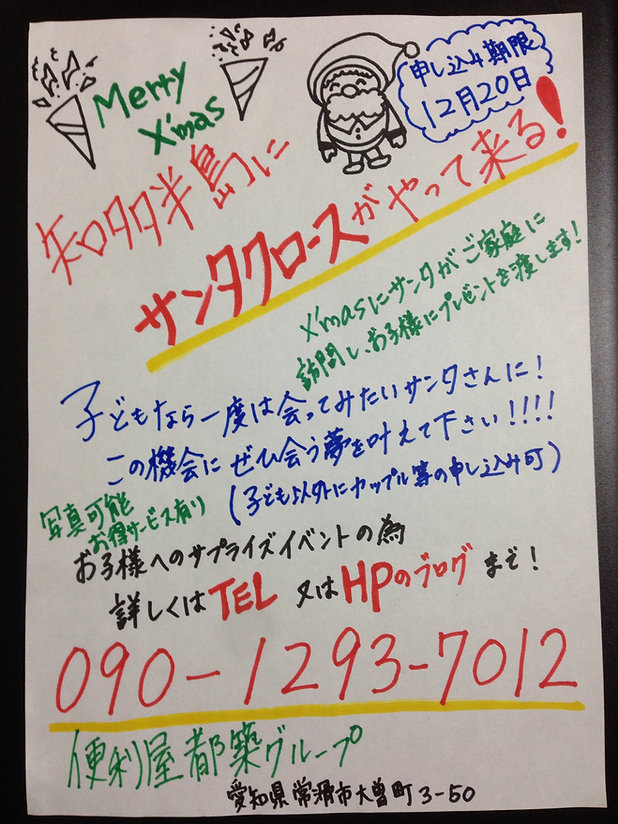 Merry
X'mas
申し込み期限
12月20日
知多半島に
サンタクロースがやって来る!
X'masにサンタがご家庭に
訪問し、お子様にプレゼントを渡します!
子どもなら一度は会ってみたいサンタさんに!
この機会にぜひ会う夢を叶えて下さい!!!!
(子ども以外にカップル等の申し込み可)
写真可能
お得サービス有り
お子様へのサプライズイベントの為
詳しくはTEL 又はHPのブログまで!
090-1293-7012
便利屋都築グループ
愛知県常滑市大曽町3-50